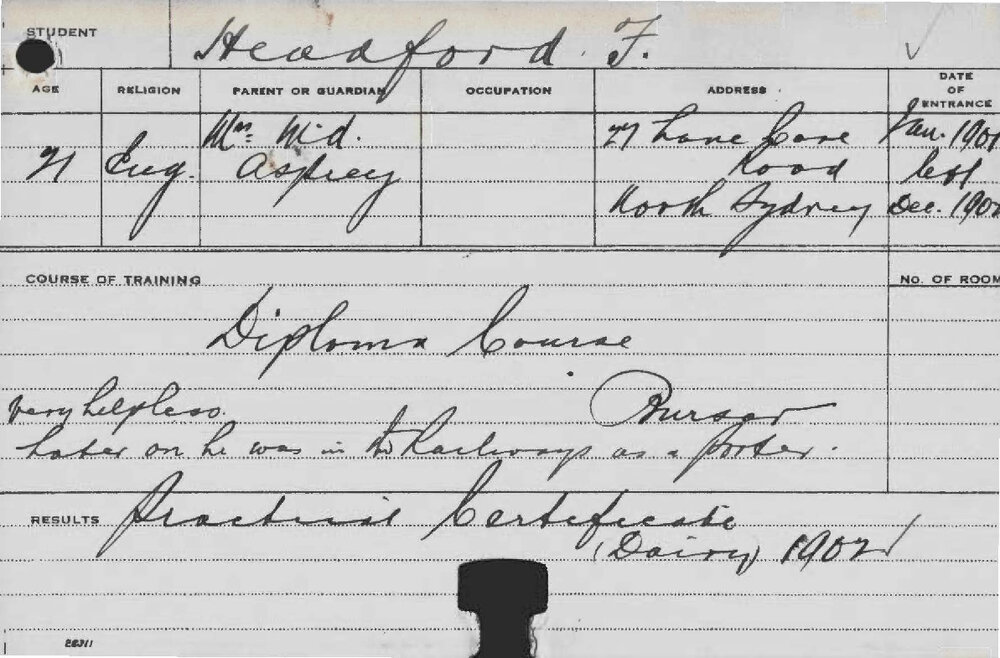 STUDENT Headford F.
AGE RELIGION PARENT OR GUARDIAN OCCUPATION ADDRESS DATE OF ENTRANCE
Mrs. M.d. 27 Lane Cove Jan. 1901
21 Eng. Asprey Road left
North Sydney Dec. 1902
COURSE OF TRAINING No. OF ROOM
Diploma Course
very helpless. Bursar
Later on he was in the Railways as a porter.
RESULTS Practical Certificate
(Dairy) 1902
26311